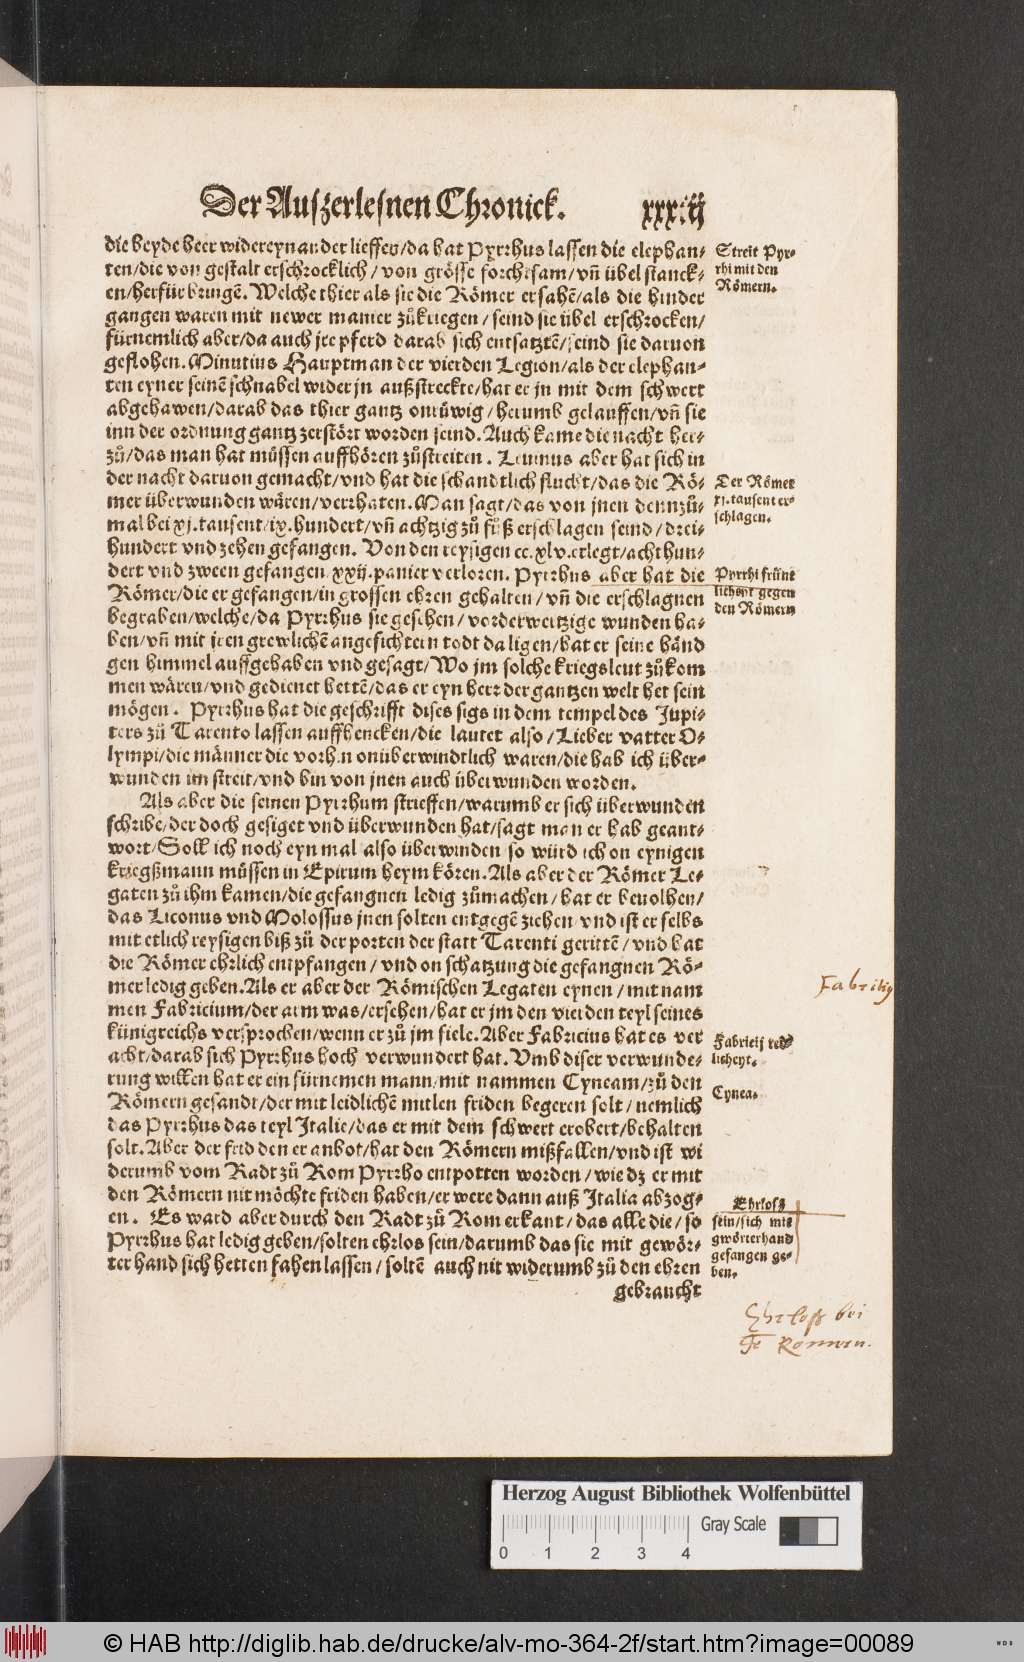 Der Auſzerleſnen Chronick. xxxij
die beyde heer widereynander lieffen/da hat Pyrrhus laſſen die elephan⸗
ten/die von geſtalt erſchrocklich/ von gröſſe forchtſam/vñ übel ſtanck⸗
en/herfür bringẽ. Welche thier als ſie die Römer erſahẽ/als die hinder
gangen waren mit newer manier zů kriegen/ ſeind ſie übel erſchrocken/
fürnemlich aber/da auch jre pferd darab ſich entſatztẽ/ſeind ſie daruon
geflohen. Minutius Hauptman der vierden Legion/als der elephan⸗
ten eyner ſeinẽ ſchnabel wider jn außſtreckte/hat er jn mit dem ſchwert
abgehawen/darab das thier gantz onrüwig/herumb gelauffen/vñ ſie
inn der ordnung gantz zerſtört worden ſeind. Auch kame die nacht her⸗
zů/das man hat müſſen auffhören zůſtreiten. Leuinus aber hat ſich in
der nacht daruon gemacht/vnd hat die ſchandtlich flucht/das die Rö⸗
mer überwunden wären/verrhaten. Man ſagt/das von jnen dennzů⸗
mal bei xj.tauſent/ix.hundert/vñ achtzig zů fůß erſchlagen ſeind/drei⸗
hundert vnd zehen gefangen. Von den reyſigen cc.xlv.erlegt/acht hun⸗
dert vnd zween gefangen/xxij.panier verloren. Pyrrhus aber hat die
Römer/die er gefangen/in groſſen ehren gehalten/ vñ die erſchlagnen
begraben/welche/da Pyrrhus ſie geſehen/ vorderwertzige wunden ha⸗
ben/vñ mit jren grewlichẽ angeſichtern todt da ligen/hat er ſeine händ
gen himmel auffgehaben vnd geſagt/Wo jm ſolche kriegsleut zůkom
men wären/vnd gedienet hettẽ/das er eyn herr der gantzen welt het ſein
mögen. Pyrrhus hat die geſchrifft diſes ſigs in dem tempel des Jupi⸗
ters zů Tarento laſſen auffhencken/die lautet alſo/Lieber vatter O⸗
lympi/die männer die vorhin onüberwindtlich waren/die hab ich über⸗
wunden im ſtreit/vnd bin von jnen auch überwunden worden.
Als aber die ſeinen Pyrrhum ſtrieffen/warumb er ſich überwunden
ſchribe/der doch geſiget vnd überwunden hat/ſagt man er hab geant⸗
wort/Soll ich noch eyn mal alſo überwinden ſo würd ich on eynigen
kriegßmann müſſen in Epirum heym kören. Als aber der Römer Le⸗
gaten zů ihm kamen/die gefangnen ledig zůmachen/hat er beuolhen/
das Liconus vnd Moloſſus jnen ſolten entgegẽ ziehen/vnd iſt er ſelbs
mit etlich reyſigen biß zů der porten der ſtatt Tarenti gerittẽ/vnd hat
die Römer ehrlich entpfangen/ vnd on ſchatzung die gefangnen Rö⸗
mer ledig geben. Als er aber der Römiſchen Legaten eynen/mit nam
men Fabricium/der arm was/erſehen/hat er jm den vierden teyl ſeines
künigreichs verſprochen/wenn er zů jm fiele. Aber Fabricius hat es ver
acht/darab ſich Pyrrhus hoch verwundert hat. Vmb diſer verwunde⸗
rung willen hat er ein fürnemen mann/mit nammen Cyneam/zů den
Römern geſandt/der mit leidlichẽ mitlen friden begeren ſolt/nemlich
das Pyrrhus das teyl Italie/das er mit dem ſchwert erobert/behalten
ſolt. Aber der frid den er anbot/hat den Römern mißfallen/vnd iſt wi
derumb vom Radt zů Rom Pyrrho entpotten worden/wie dz er mit
den Römern nit möchte friden haben/er were dann auß Italia abzog⸗
en. Es ward aber durch den Radt zů Rom erkant/das alle die/ſo
Pyrrhus hat ledig geben/ſolten ehrlos ſein/darumb das ſie mit gewör⸗
ter hand ſich hetten fahen laſſen/ſoltẽ auch nit widerumb zů den ehren
gebraucht
Streit Pyr⸗
rhi mit den
Römern.
Der Römer
xj.tauſent er⸗
ſchlagen.
Pyrrhi fründ
licheyt gegen
den Römern
Fabricius
Fabricij red
licheyt.
Cynea.
Ehrloſz
ſein/ſich mit
gwörter hand
gefangen ge⸗
ben.
Ehrloß bei
Römern.
Herzog August Bibliothek Wolfenbüttel
Gray Scale
0 1 2 3 4
© HAB http://diglib.hab.de/drucke/alv-mo-364-2f/start.htm?image=00089